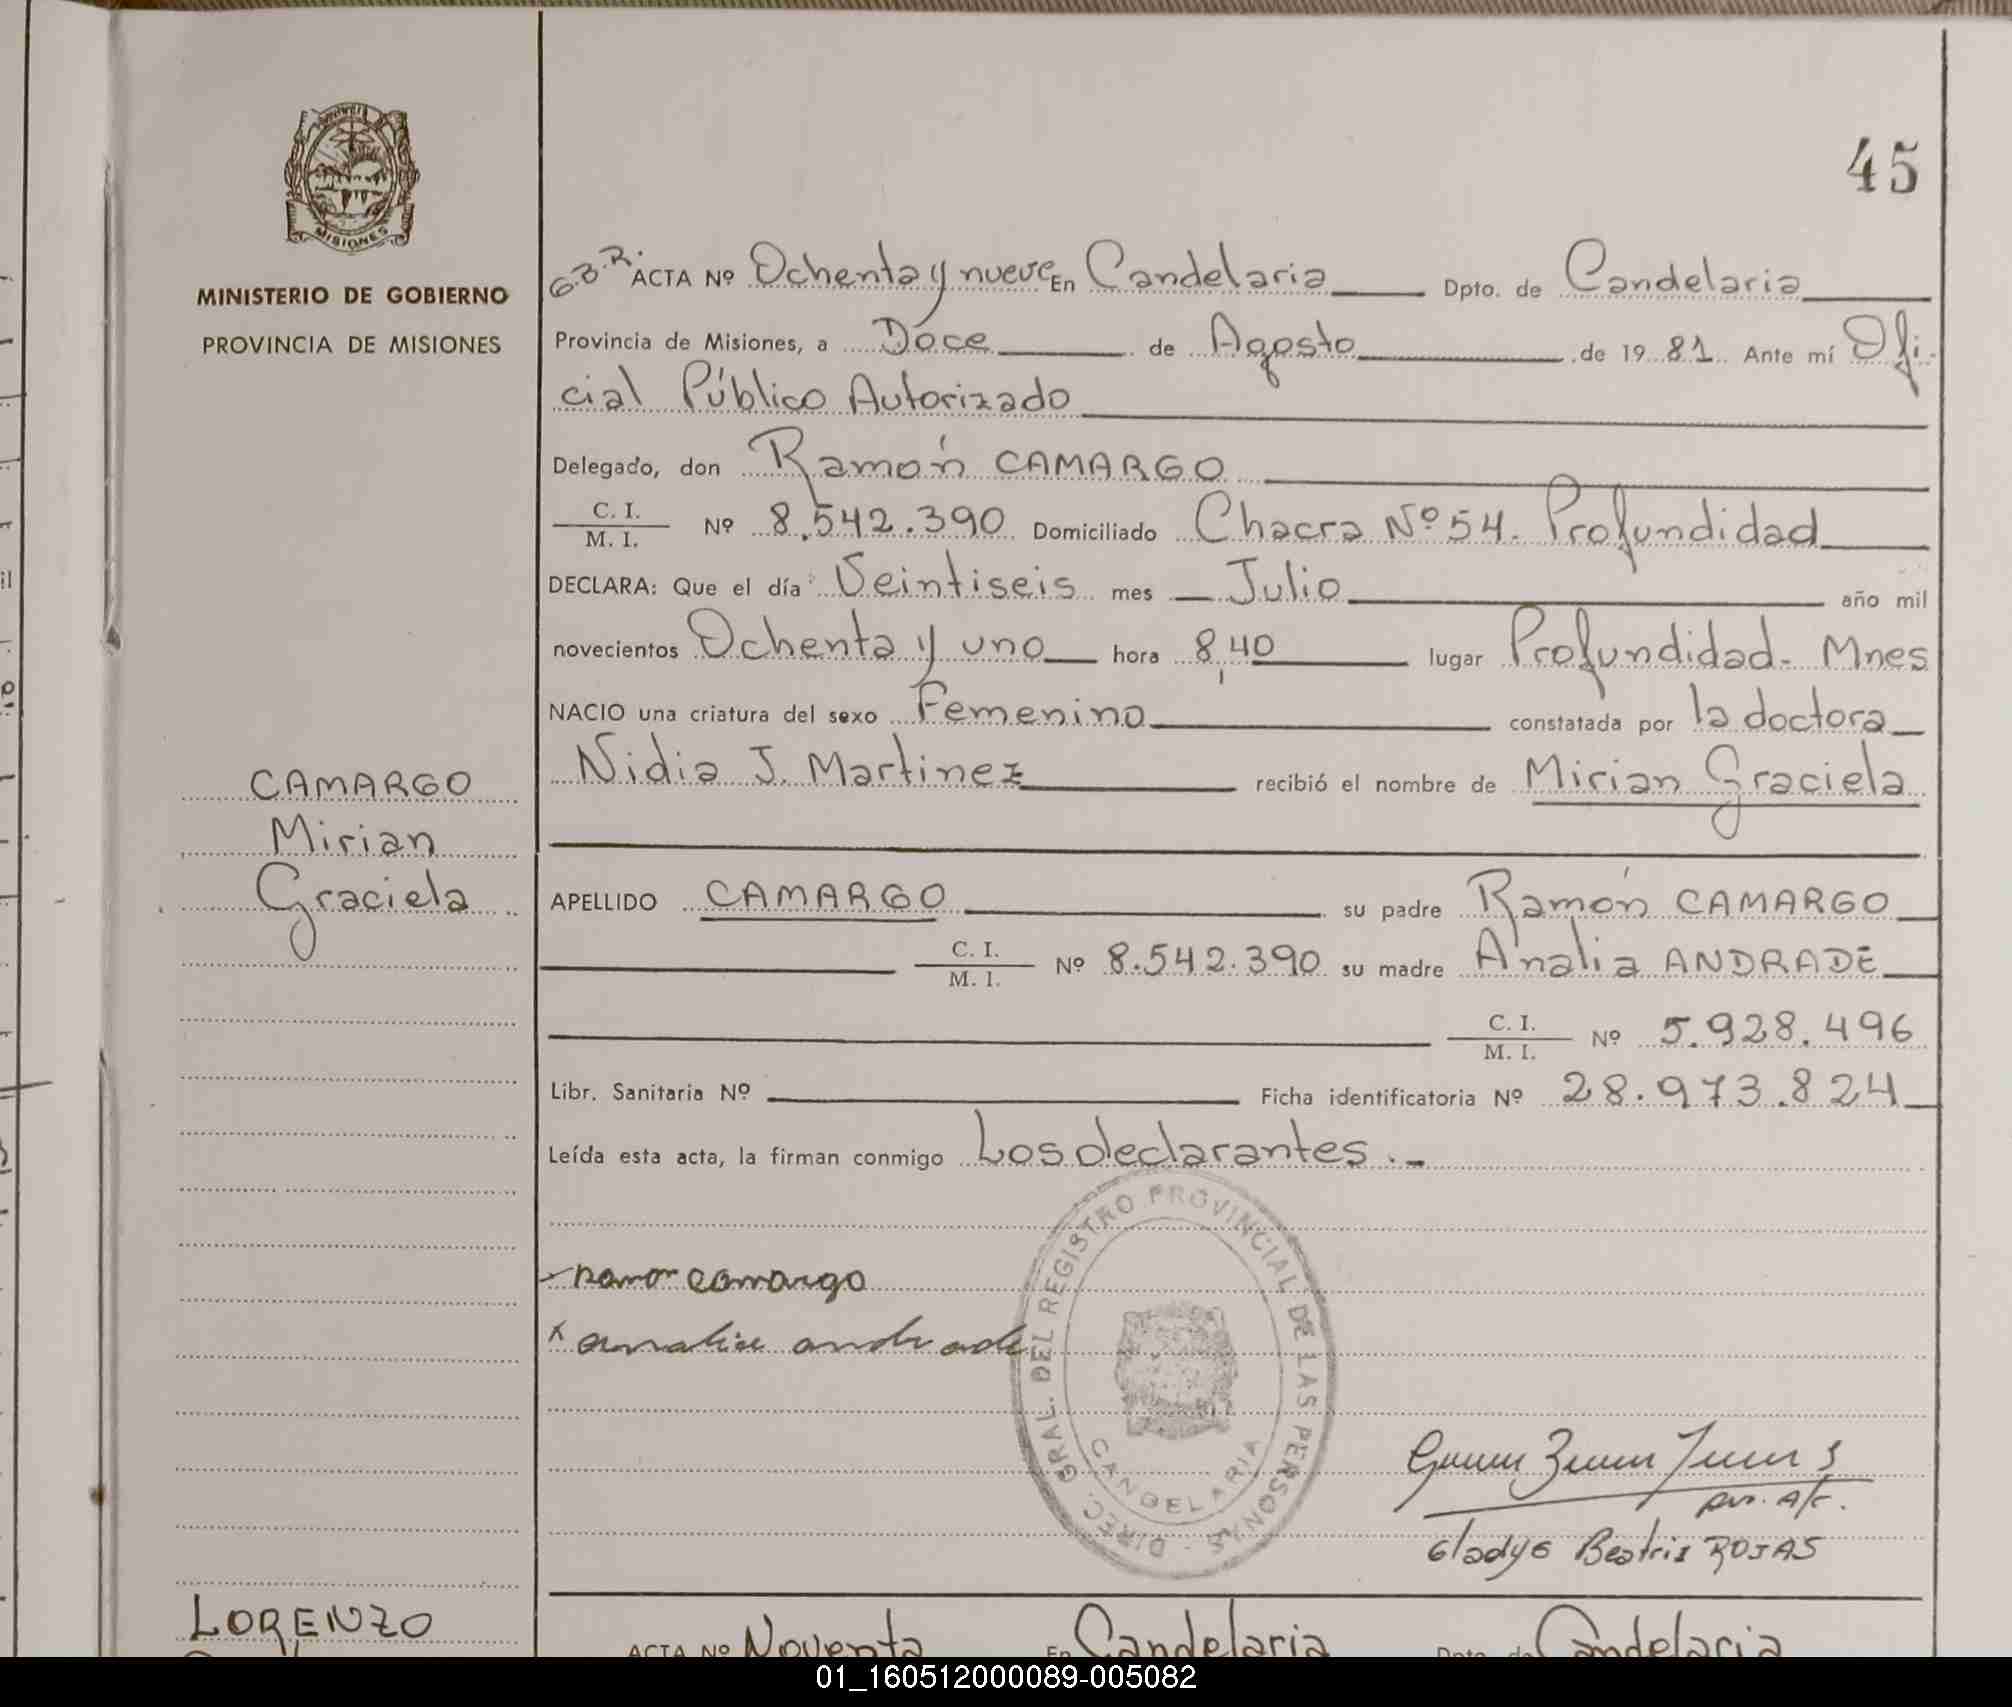 45
MISIONES
MINISTERIO DE GOBIERNO
PROVINCIA DE MISIONES
CAMARGO
Mirian
Graciela
G.B.R. ACTA Nº Ochenta y nueve En Candelaria Dpto. de Candelaria
Provincia de Misiones, a Doce de Agosto de 19 81 Ante mí Ofi-
cial Público Autorizado
Delegado, don Ramón CAMARGO
C. I.
M. I. Nº 8.542.390 Domiciliado Chacra Nº 54. Profundidad
DECLARA: Que el día Veintiseis mes Julio año mil
novecientos Ochenta y uno hora 8,40 lugar Profundidad- Mnes
NACIO una criatura del sexo Femenino constatada por la doctora
Nidia J. Martinez recibió el nombre de Mirian Graciela
APELLIDO CAMARGO su padre Ramón CAMARGO
C. I.
M. I. Nº 8.542.390 su madre Analia ANDRADE
C. I.
M. I. Nº 5.928.496
Libr. Sanitaria Nº Ficha identificatoria Nº 28.973.824
Leída esta acta, la firman conmigo Los declarantes.-
Ramon camargo
x analia andrade
DIREC. GRAL. DEL REGISTRO PROVINCIAL DE LAS PERSONAS
CANDELARIA
Gladys Beatris ROJAS
LORENZO
ACTA Nº Noventa En Candelaria Dpto. de Candelaria
01_160512000089-005082